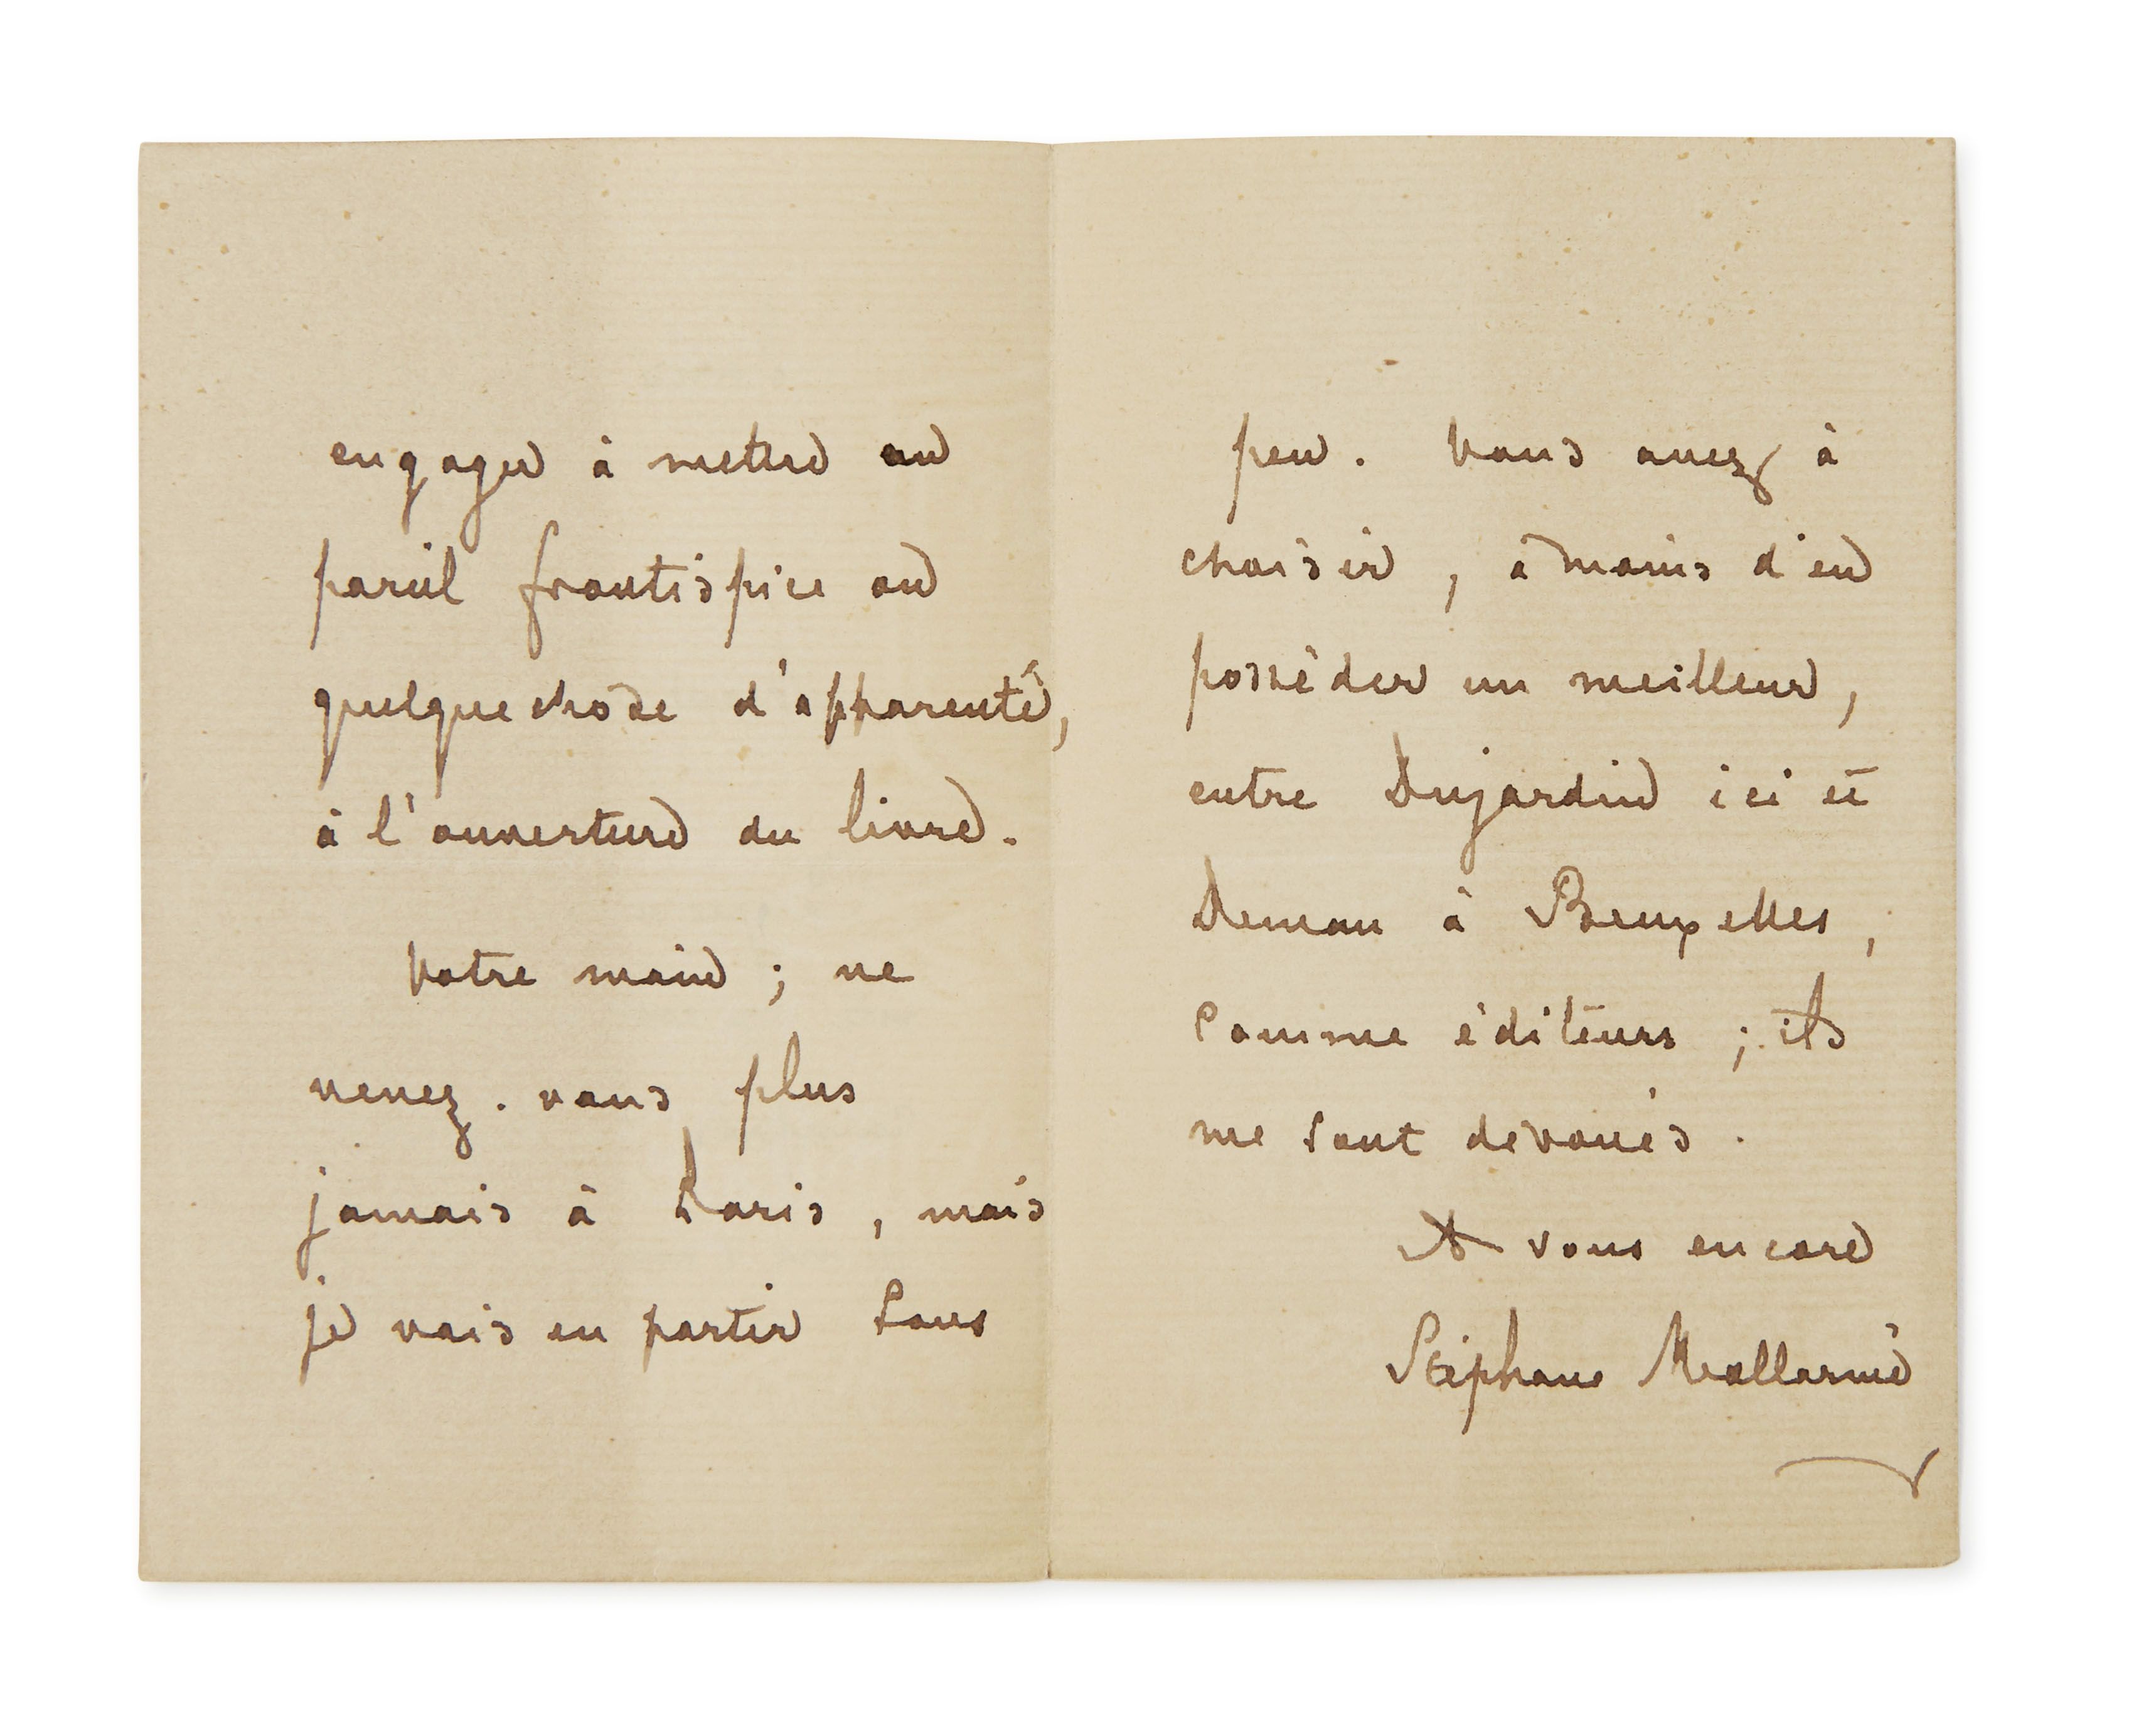 engager à mettre un
pareil frontispice ou
quelquechose d'apparenté,
à l'ouverture du livre.
Votre main ; ne
venez-vous plus
jamais à Paris, mais
je vais en partir sous
peu. Vous avez à
choisir, à moins d'en
posséder un meilleur,
entre Dujardin ici et
Deman à Bruxelles,
comme éditeurs ; ils
me sont dévoués.
A vous encore
Stéphane Mallarmé